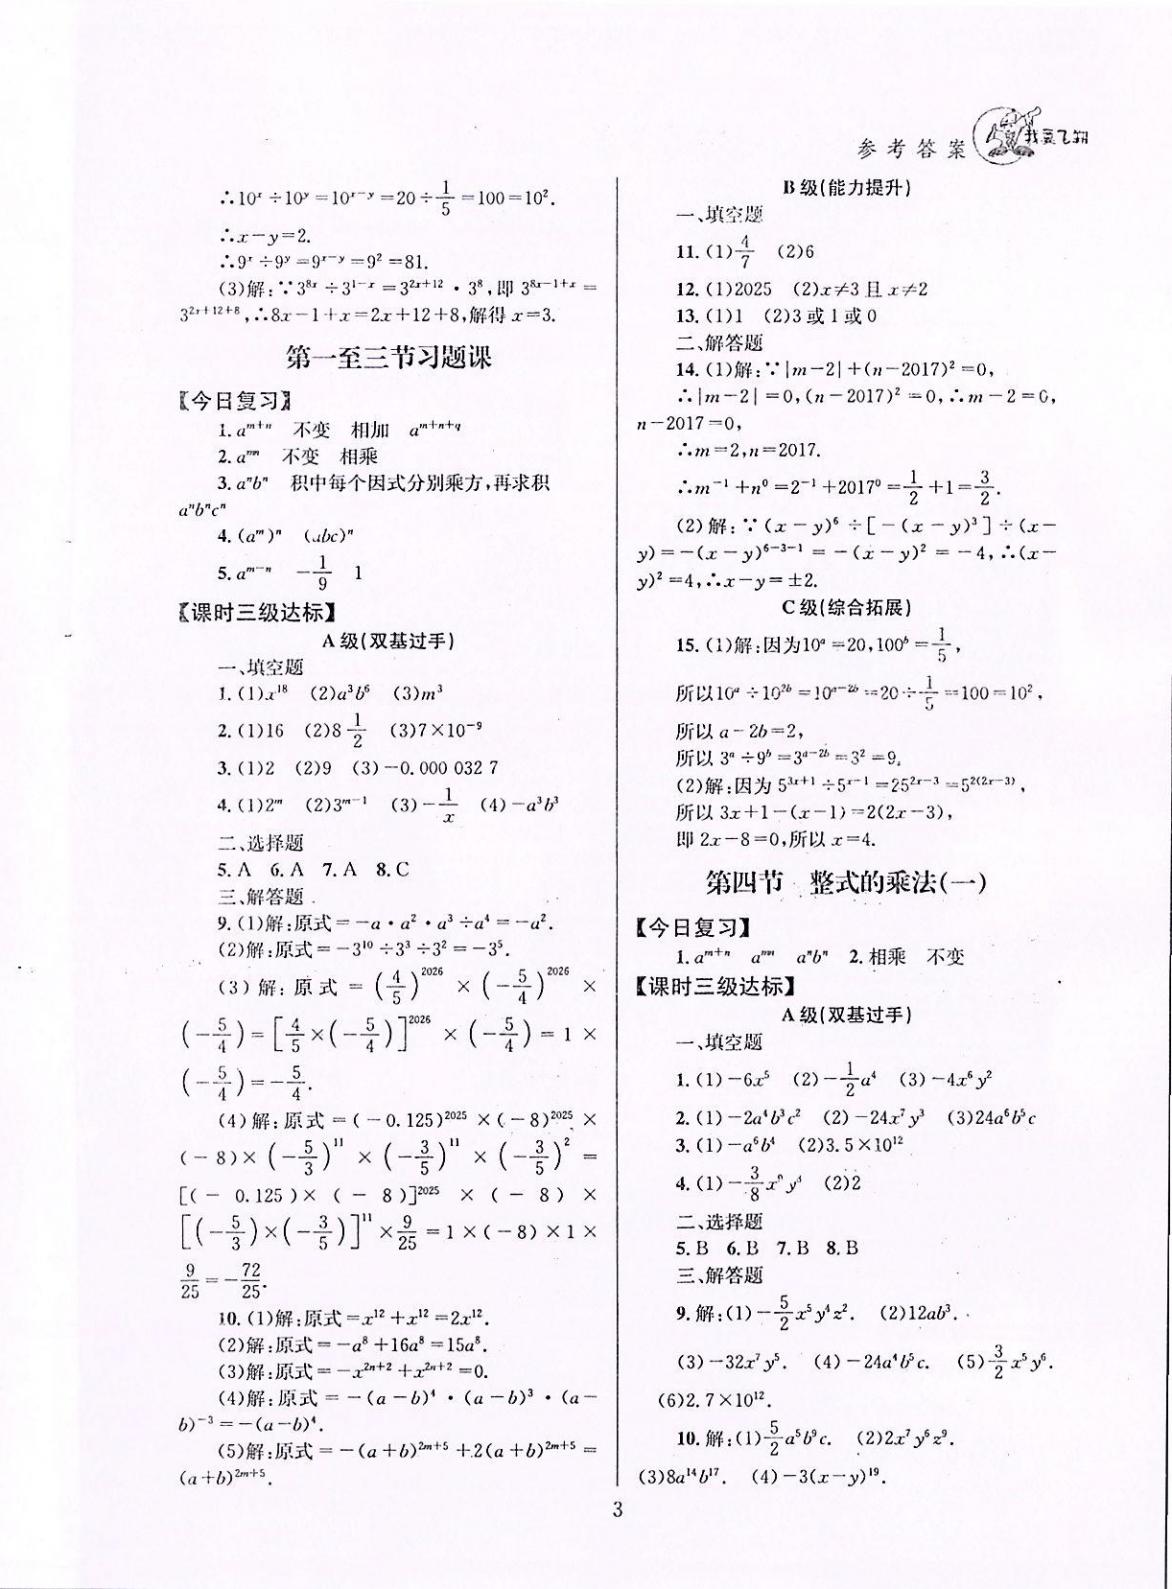 参考答案
我要飞翔
∴10ˣ÷10ʸ=10ˣ⁻ʸ=20÷1/5=100=10².
∴x-y=2.
∴9ˣ÷9ʸ=9ˣ⁻ʸ=9²=81.
(3)解:∵3^{8x}÷3^{1-x}=3^{2x+12}·3^8,即 3^{8x-1+x}=
3^{2x+12+8},∴8x-1+x=2x+12+8,解得 x=3.
第一至三节习题课
【今日复习】
1. a^{m+n} 不变 相加 a^{m+n+q}
2. a^{mn} 不变 相乘
3. a^n b^n 积中每个因式分别乘方,再求积
a^n b^n c^n
4. (a^m)^n (abc)^n
5. a^{m-n} -1/9 1
【课时三级达标】
A 级(双基过手)
一、填空题
1. (1)x^{18} (2)a^3b^6 (3)m^3
2. (1)16 (2)8 1/2 (3)7×10^{-9}
3. (1)2 (2)9 (3)-0.000 032 7
4. (1)2^m (2)3^{m-1} (3)-1/x (4)-a^3b^3
二、选择题
5. A 6. A 7. A 8. C
三、解答题
9. (1)解:原式=-a·a^2·a^3÷a^4=-a^2.
(2)解:原式=-3^{10}÷3^3÷3^2=-3^5.
(3)解:原式=(4/5)^{2026}×(-5/4)^{2026}×
(-5/4)=[4/5×(-5/4)]^{2026}×(-5/4)=1×
(-5/4)=-5/4.
(4)解:原式=(-0.125)^{2025}×(-8)^{2025}×
(-8)×(-5/3)^{11}×(-3/5)^{11}×(-3/5)^2=
[(-0.125)×(-8)]^{2025}×(-8)×
[(-5/3)×(-3/5)]^{11}×9/25=1×(-8)×1×
9/25=-72/25.
10. (1)解:原式=x^{12}+x^{12}=2x^{12}.
(2)解:原式=-a^8+16a^8=15a^8.
(3)解:原式=-x^{2n+2}+x^{2n+2}=0.
(4)解:原式=-(a-b)^4·(a-b)^3·(a-
b)^{-3}=-(a-b)^4.
(5)解:原式=-(a+b)^{2m+5}+2(a+b)^{2m+5}=
(a+b)^{2m+5}.
B 级(能力提升)
一、填空题
11. (1)4/7 (2)6
12. (1)2025 (2)x≠3 且 x≠2
13. (1)1 (2)3 或 1 或 0
二、解答题
14. (1)解:∵|m-2|+(n-2017)^2=0,
∴|m-2|=0,(n-2017)^2=0,∴m-2=0,
n-2017=0,
∴m=2,n=2017.
∴m^{-1}+n^0=2^{-1}+2017^0=1/2+1=3/2.
(2)解:∵(x-y)^6÷[-(x-y)^3]÷(x-
y)=-(x-y)^{6-3-1}=-(x-y)^2=-4,∴(x-
y)^2=4,∴x-y=±2.
C 级(综合拓展)
15. (1)解:因为10^a=20,100^b=1/5,
所以10^a÷10^{2b}=10^{a-2b}=20÷1/5=100=10^2,
所以 a-2b=2,
所以 3^a÷9^b=3^{a-2b}=3^2=9.
(2)解:因为 5^{3x+1}÷5^{x-1}=25^{2x-3}=5^{2(2x-3)},
所以 3x+1-(x-1)=2(2x-3),
即 2x-8=0,所以 x=4.
第四节 整式的乘法(一)
【今日复习】
1. a^{m+n} a^{mn} a^n b^n 2. 相乘 不变
【课时三级达标】
A 级(双基过手)
一、填空题
1. (1)-6x^5 (2)-1/2a^4 (3)-4x^6y^2
2. (1)-2a^4b^3c^2 (2)-24x^7y^3 (3)24a^6b^5c
3. (1)-a^6b^4 (2)3.5×10^{12}
4. (1)-3/8x^ny^4 (2)2
二、选择题
5. B 6. B 7. B 8. B
三、解答题
9. 解:(1)-5/2x^5y^4z^2. (2)12ab^3.
(3)-32x^7y^5. (4)-24a^4b^5c. (5)3/2x^5y^6.
(6)2.7×10^{12}.
10. 解:(1)5/2a^5b^9c. (2)2x^7y^6z^9.
(3)8a^{14}b^{17}. (4)-3(x-y)^{19}.
3